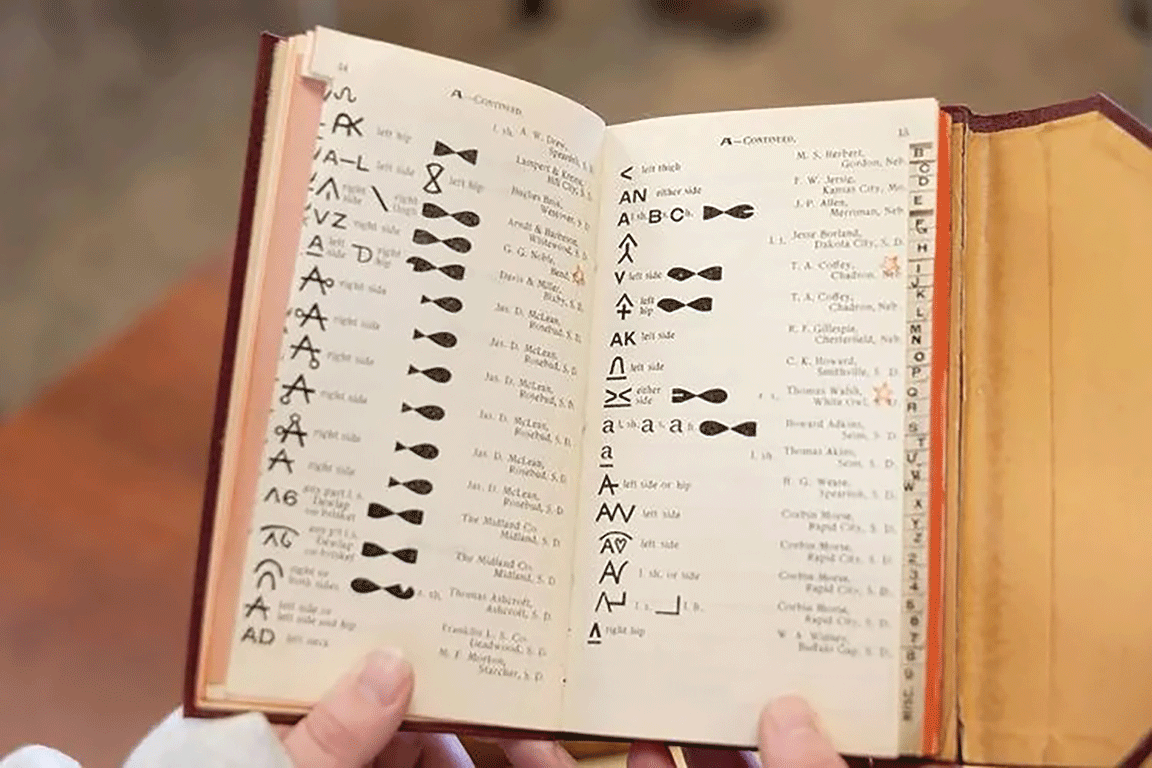 A—CONTINUED.
left hip
I. sh. A. W. Drew,
Spearfish, S. D.
A–L left side
left hip
Hill City, S. D.
right side
right
VZ right side
Whitewood, S. D.
A left side
D right hip
G. G. Noble,
Bend,
Davis & Miller,
Bixby, S. D.
right side
Jas. D. McLean,
Rosebud, S. D.
right side
Jas. D. McLean,
Rosebud, S. D.
right side
Jas. D. McLean,
Rosebud, S. D.
right side
Jas. D. McLean,
Rosebud, S. D.
right side
Jas. D. McLean,
Rosebud, S. D.
right side
Jas. D. McLean,
Rosebud, S. D.
any part l. s.
Dewlap
on brisket
The Midland Co.
Midland, S. D.
Dewlap
on brisket
The Midland Co.
Midland, S. D.
right or
both sides
Thomas Ashcroft,
Ashcroft, S. D.
A left side or
left side and hip
Franklin L. S. Co.
Deadwood, S. D.
AD left neck
M. F. Morton,
Starcher, S. D.
A—CONTINUED.
15
left thigh
M. S. Herbert,
Gordon, Neb.
AN either side
F. W. Jersig,
Kansas City, Mo.
A l. sh. B s. C h.
J. P. Allen,
Merriman, Neb.
Jesse Borland,
Dakota City, S. D.
V left side
T. A. Coffey,
Chadron, Neb.
left hip
T. A. Coffey,
Chadron, Neb.
AK left side
R. F. Gillespie,
Chesterfield, Neb.
left side
C. K. Howard,
Smithville, S. D.
either side
Thomas Walsh,
White Owl, S. D.
a l. sh. a s. a h.
Howard Adkins,
Seim, S. D.
a
l. sh.
Thomas Akins,
Seim, S. D.
left side or hip
Spearfish, S. D.
left side
Corbin Morse,
Rapid City, S. D.
A left side
Corbin Morse,
Rapid City, S. D.
l. sh. or side
Corbin Morse,
Rapid City, S. D.
l. s. l. h.
Corbin Morse,
Rapid City, S. D.
right hip
Buffalo Gap, S. D.
B
C
D
E
F
G
H
I
J
K
L
M
N
O
P
Q
R
S
T
U
V
W
X
Y
Z
2
3
4
5
6
7
8
9
MISC.